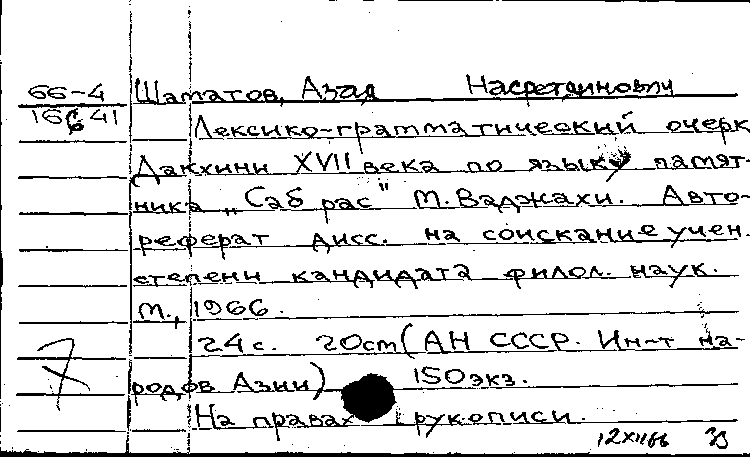 66-4 Шаматов, Азад Насретдинович
16641 Лексико-грамматический очерк
Дакхини XVII века по языку памят-
ника „Саб рас" М. Ваджахи. Авто-
реферат дисс. на соискание учен.
степени кандидата филол. наук.
М., 1966.
24 с. 20 см (АН СССР. Ин-т на-
родов Азии) 150 экз.
На правах рукописи.
12 XII 66